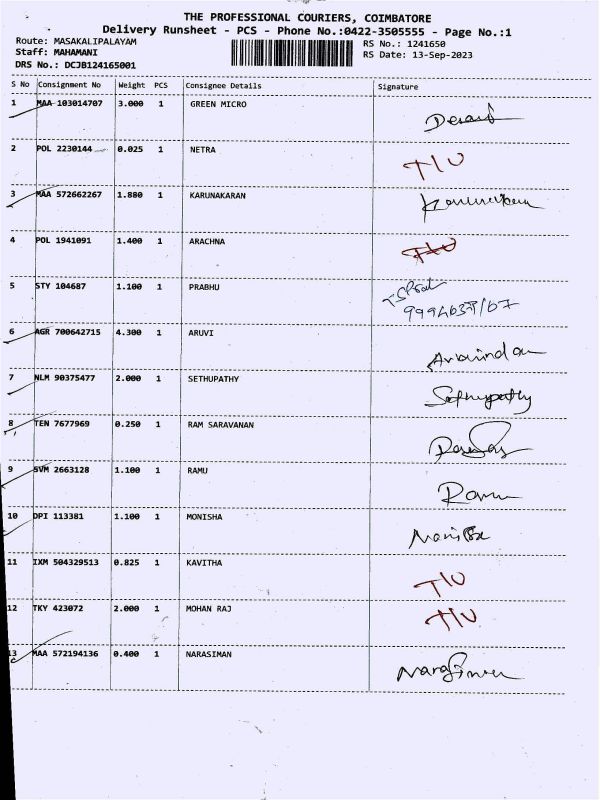 THE PROFESSIONAL COURIERS, COIMBATORE
Delivery Runsheet - PCS - Phone No.:0422-3505555 - Page No.:1
Route: MASAKALIPALAYAM
Staff: MAHAMANI
DRS No.: DCJB124165001
RS No.: 1241650
RS Date: 13-Sep-2023
S No Consignment No Weight PCS Consignee Details Signature
1 MAA 103014707 3.000 1 GREEN MICRO
2 POL 2230144 0.025 1 NETRA T/U
3 MAA 572662267 1.880 1 KARUNAKARAN
4 POL 1941091 1.400 1 ARACHNA T/U
5 STY 104687 1.100 1 PRABHU
6 AGR 700642715 4.300 1 ARUVI Aravindan
7 NLM 90375477 2.000 1 SETHUPATHY Sethupathy
8 TEN 7677969 0.250 1 RAM SARAVANAN
9 SVM 2663128 1.100 1 RAMU Ramu
10 DPI 113381 1.100 1 MONISHA
11 IXM 504329513 0.825 1 KAVITHA T/U
12 TKY 423072 2.000 1 MOHAN RAJ T/U
13 MAA 572194136 0.400 1 NARASIMAN